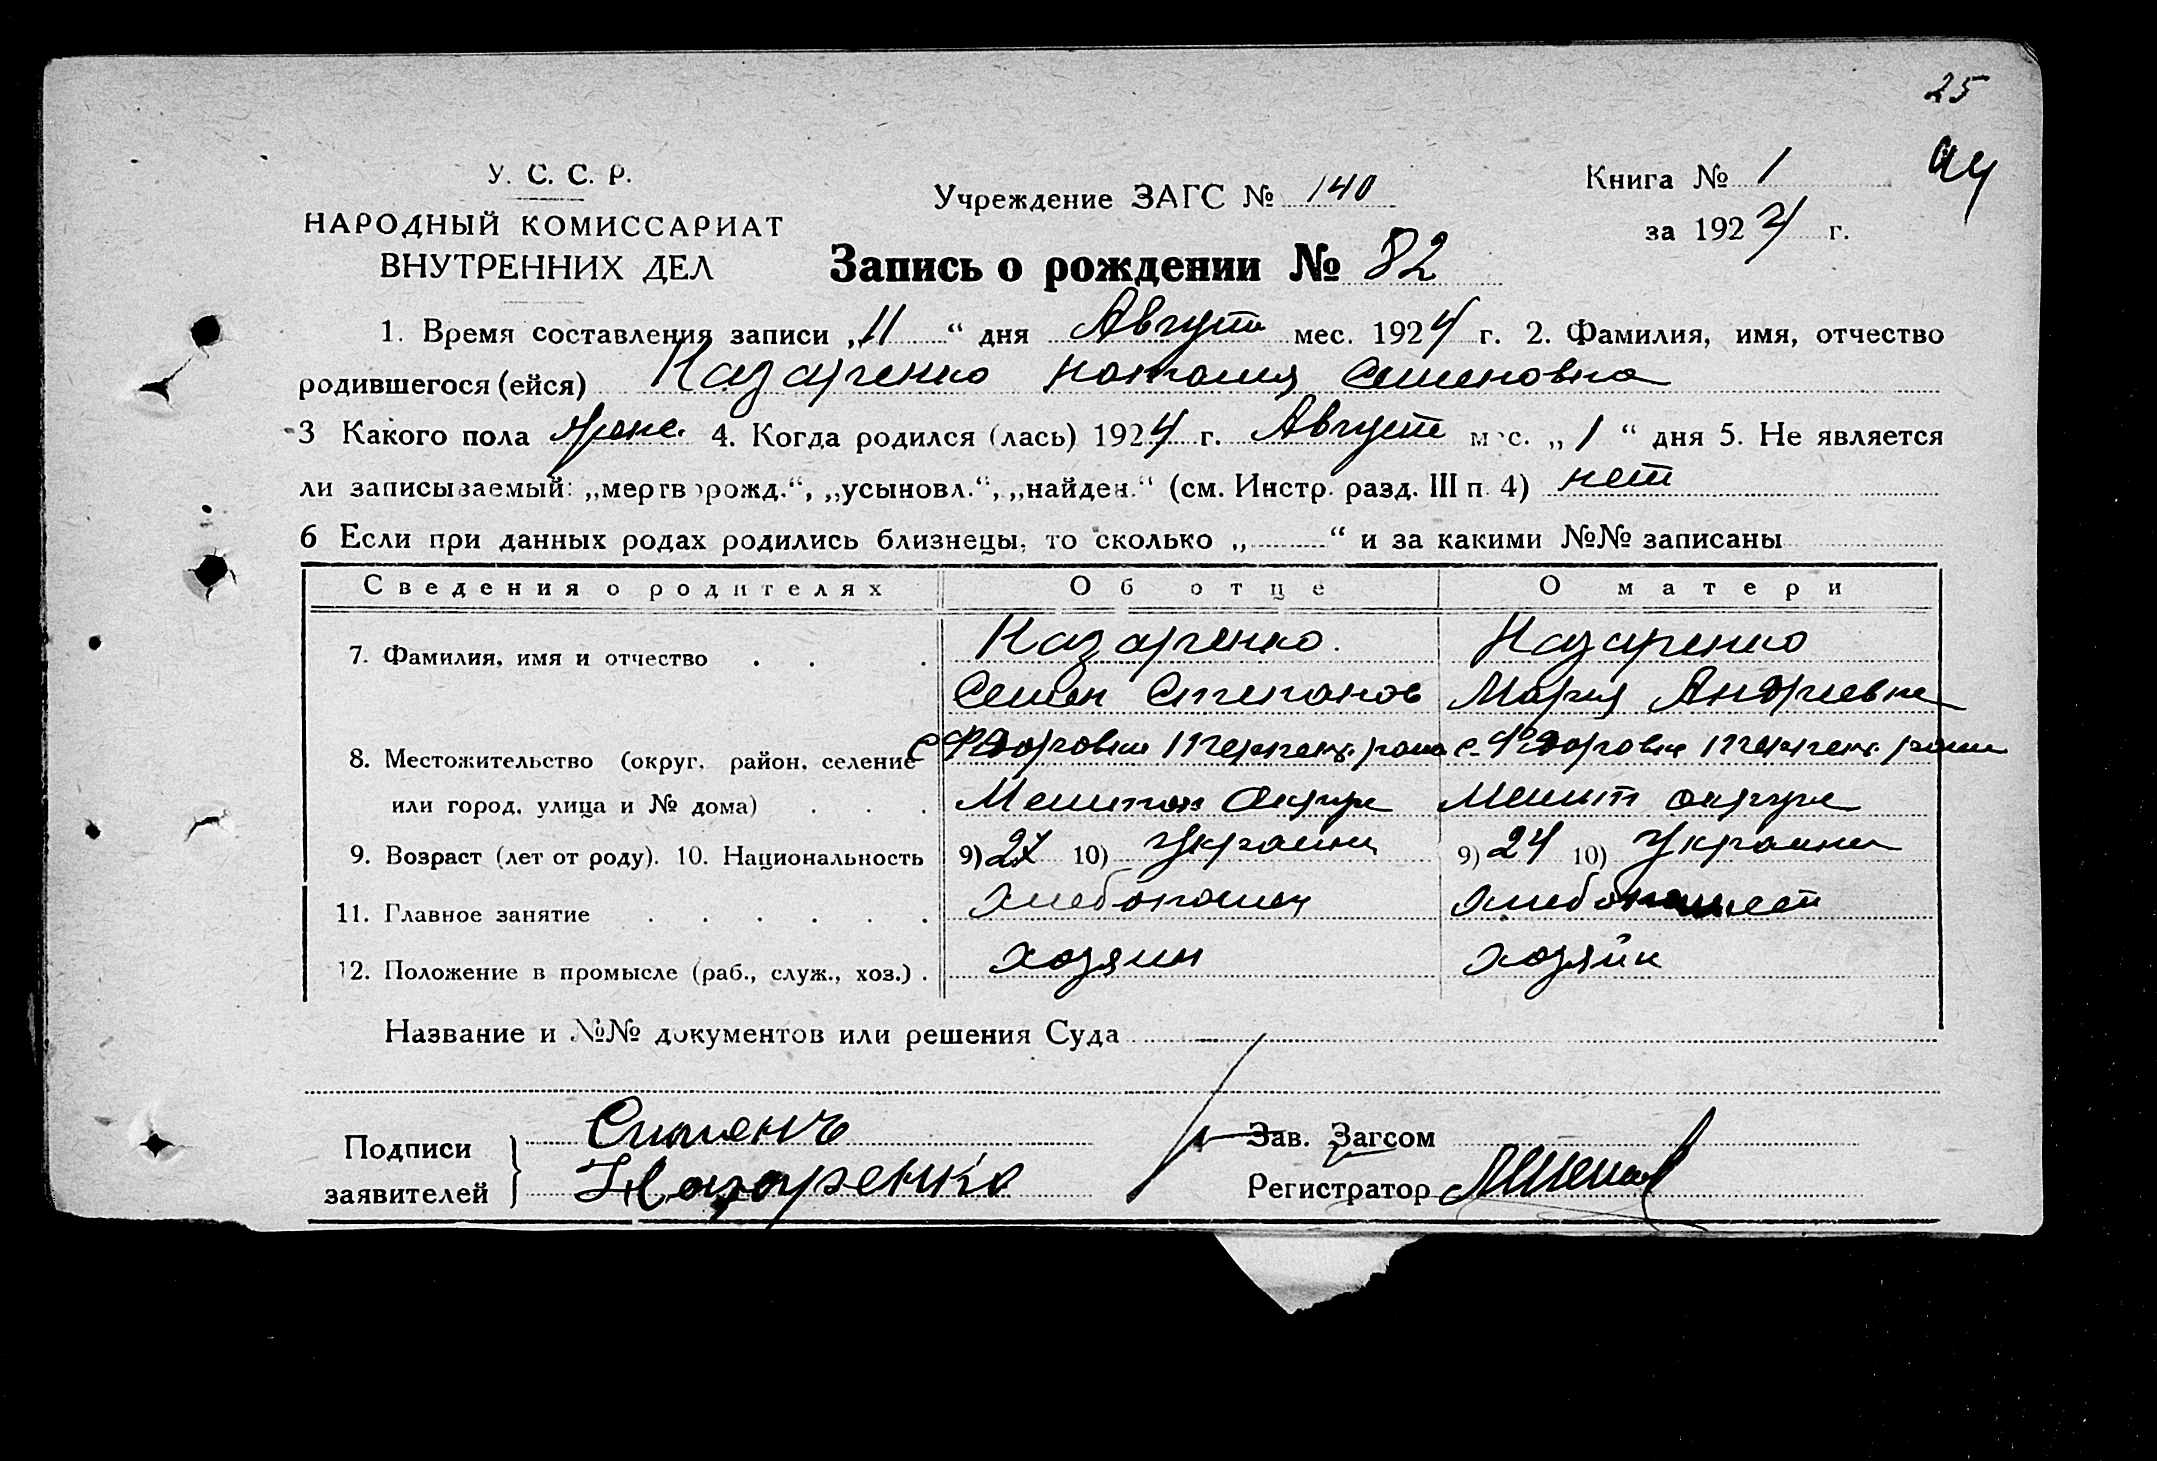 25
У. С. С. Р.
Учреждение ЗАГС № 140
Книга № 1
НАРОДНЫЙ КОМИССАРИАТ
за 1924 г.
ВНУТРЕННИХ ДЕЛ
Запись о рождении № 82
1. Время составления записи „11“ дня Август мес. 1924 г. 2. Фамилия, имя, отчество
родившегося (ейся) Назаренко Наталия Семеновна
3 Какого пола женс. 4. Когда родился (лась) 1924 г. Август мес. „1“ дня 5. Не является
ли записываемый: „мертворожд.“, „усыновл.“, „найден.“ (см. Инстр. разд. III п. 4) нет
6 Если при данных родах родились близнецы, то сколько „ “ и за какими №№ записаны
Сведения о родителях Об отце О матери
7. Фамилия, имя и отчество Назаренко. Назаренко
Семен Степанов Мария Андриевна
8. Местожительство (округ, район, селение с. Фдоровки с. Фдоровки
или город, улица и № дома) Мелитоп Округа Мелит округа
9. Возраст (лет от роду). 10. Национальность 9) 27 10) Украин 9) 24 10) Украин
11. Главное занятие Хлебопашец
12. Положение в промысле (раб., служ., хоз.) хозяин хозяйк
Название и №№ документов или решения Суда
Подписи
заявителей
Назаренко
Зав. Загсом
Регистратор